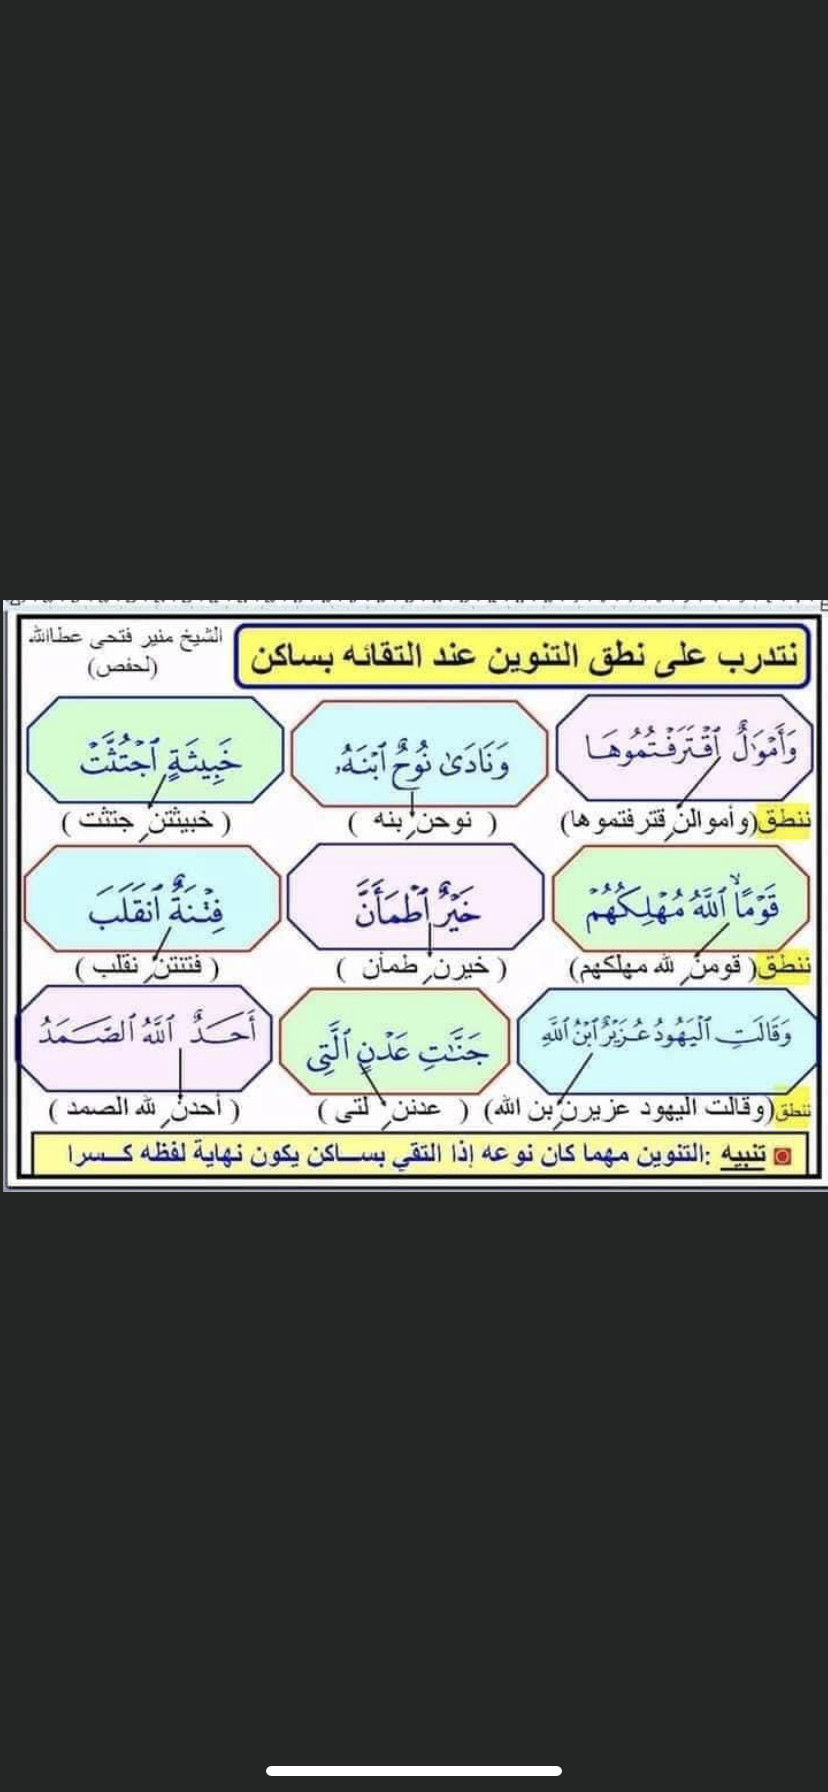 الشيخ منير فتحى عطاالله
(لحفص)
نتدرب على نطق التنوين عند التقائه بساكن
وَأَمْوَٰلٌ ٱقْتَرَفْتُمُوهَا
وَنَادَىٰ نُوحٌ ٱبْنَهُۥ
خَبِيثَةٍ ٱجْتُثَّتْ
ننطق (وأموالنِ قترفتموها)
( نوحنِ بنه )
( خبيثتنِ جتثت )
قَوْمًا ٱللَّهُ مُهْلِكُهُمْ
خَيْرٌ ٱطْمَأَنَّ
فِتْنَةٌ ٱنقَلَبَ
ننطق ( قومنِ لله مهلكهم)
( خيرنِ طمأن )
( فتنتنِ نقلب )
وَقَالَتِ ٱلْيَهُودُ عُزَيْرٌ ٱبْنُ ٱللَّهِ
جَنَّٰتِ عَدْنٍ ٱلَّتِى
أَحَدٌ ٱللَّهُ ٱلصَّمَدُ
ننطق (وقالت اليهود عزيرنِ بن الله)
( عدننِ لتى )
( أحدنِ لله الصمد )
تنبيه :التنوين مهما كان نوعه إذا التقي بساكن يكون نهاية لفظه كسرا